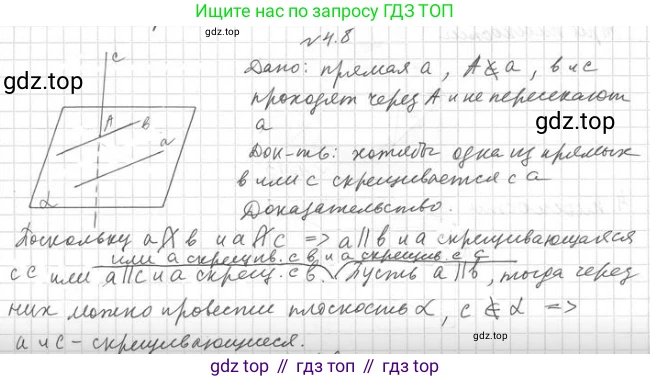 Ищите нас по запросу ГДЗ ТОП
gdz.top
№4.8
c
A
b
a
α
Дано: прямая a, A∉a, b и c
проходят через A и не пересекают
a
gdz.top
Док-ть: хотябы одна из прямых
b или c скрещивается с a
Доказательство.
Поскольку a∦b и a∦c => a||b и a скрещивающаяся
или a скрещив. с b и a скрещив с c
с c или a||c и a скрещ. с b. Пусть a||b, тогда через
них можно провести плоскость α, c ⊄ α =>
a и c - скрещивающиеся.
gdz.top // gdz.top // gdz.top